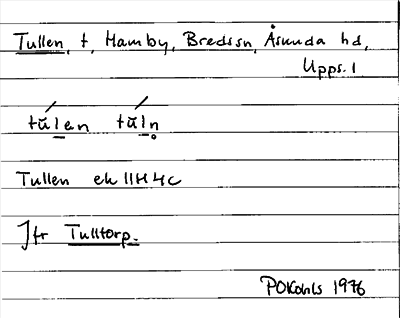 Tullen, t, Hamby, Bredssn, Åsunda hd,
Upps. l
tŭlen tŭln̥
Tullen ek 11H4c
Jfr Tulltorp.
POKohls 1976